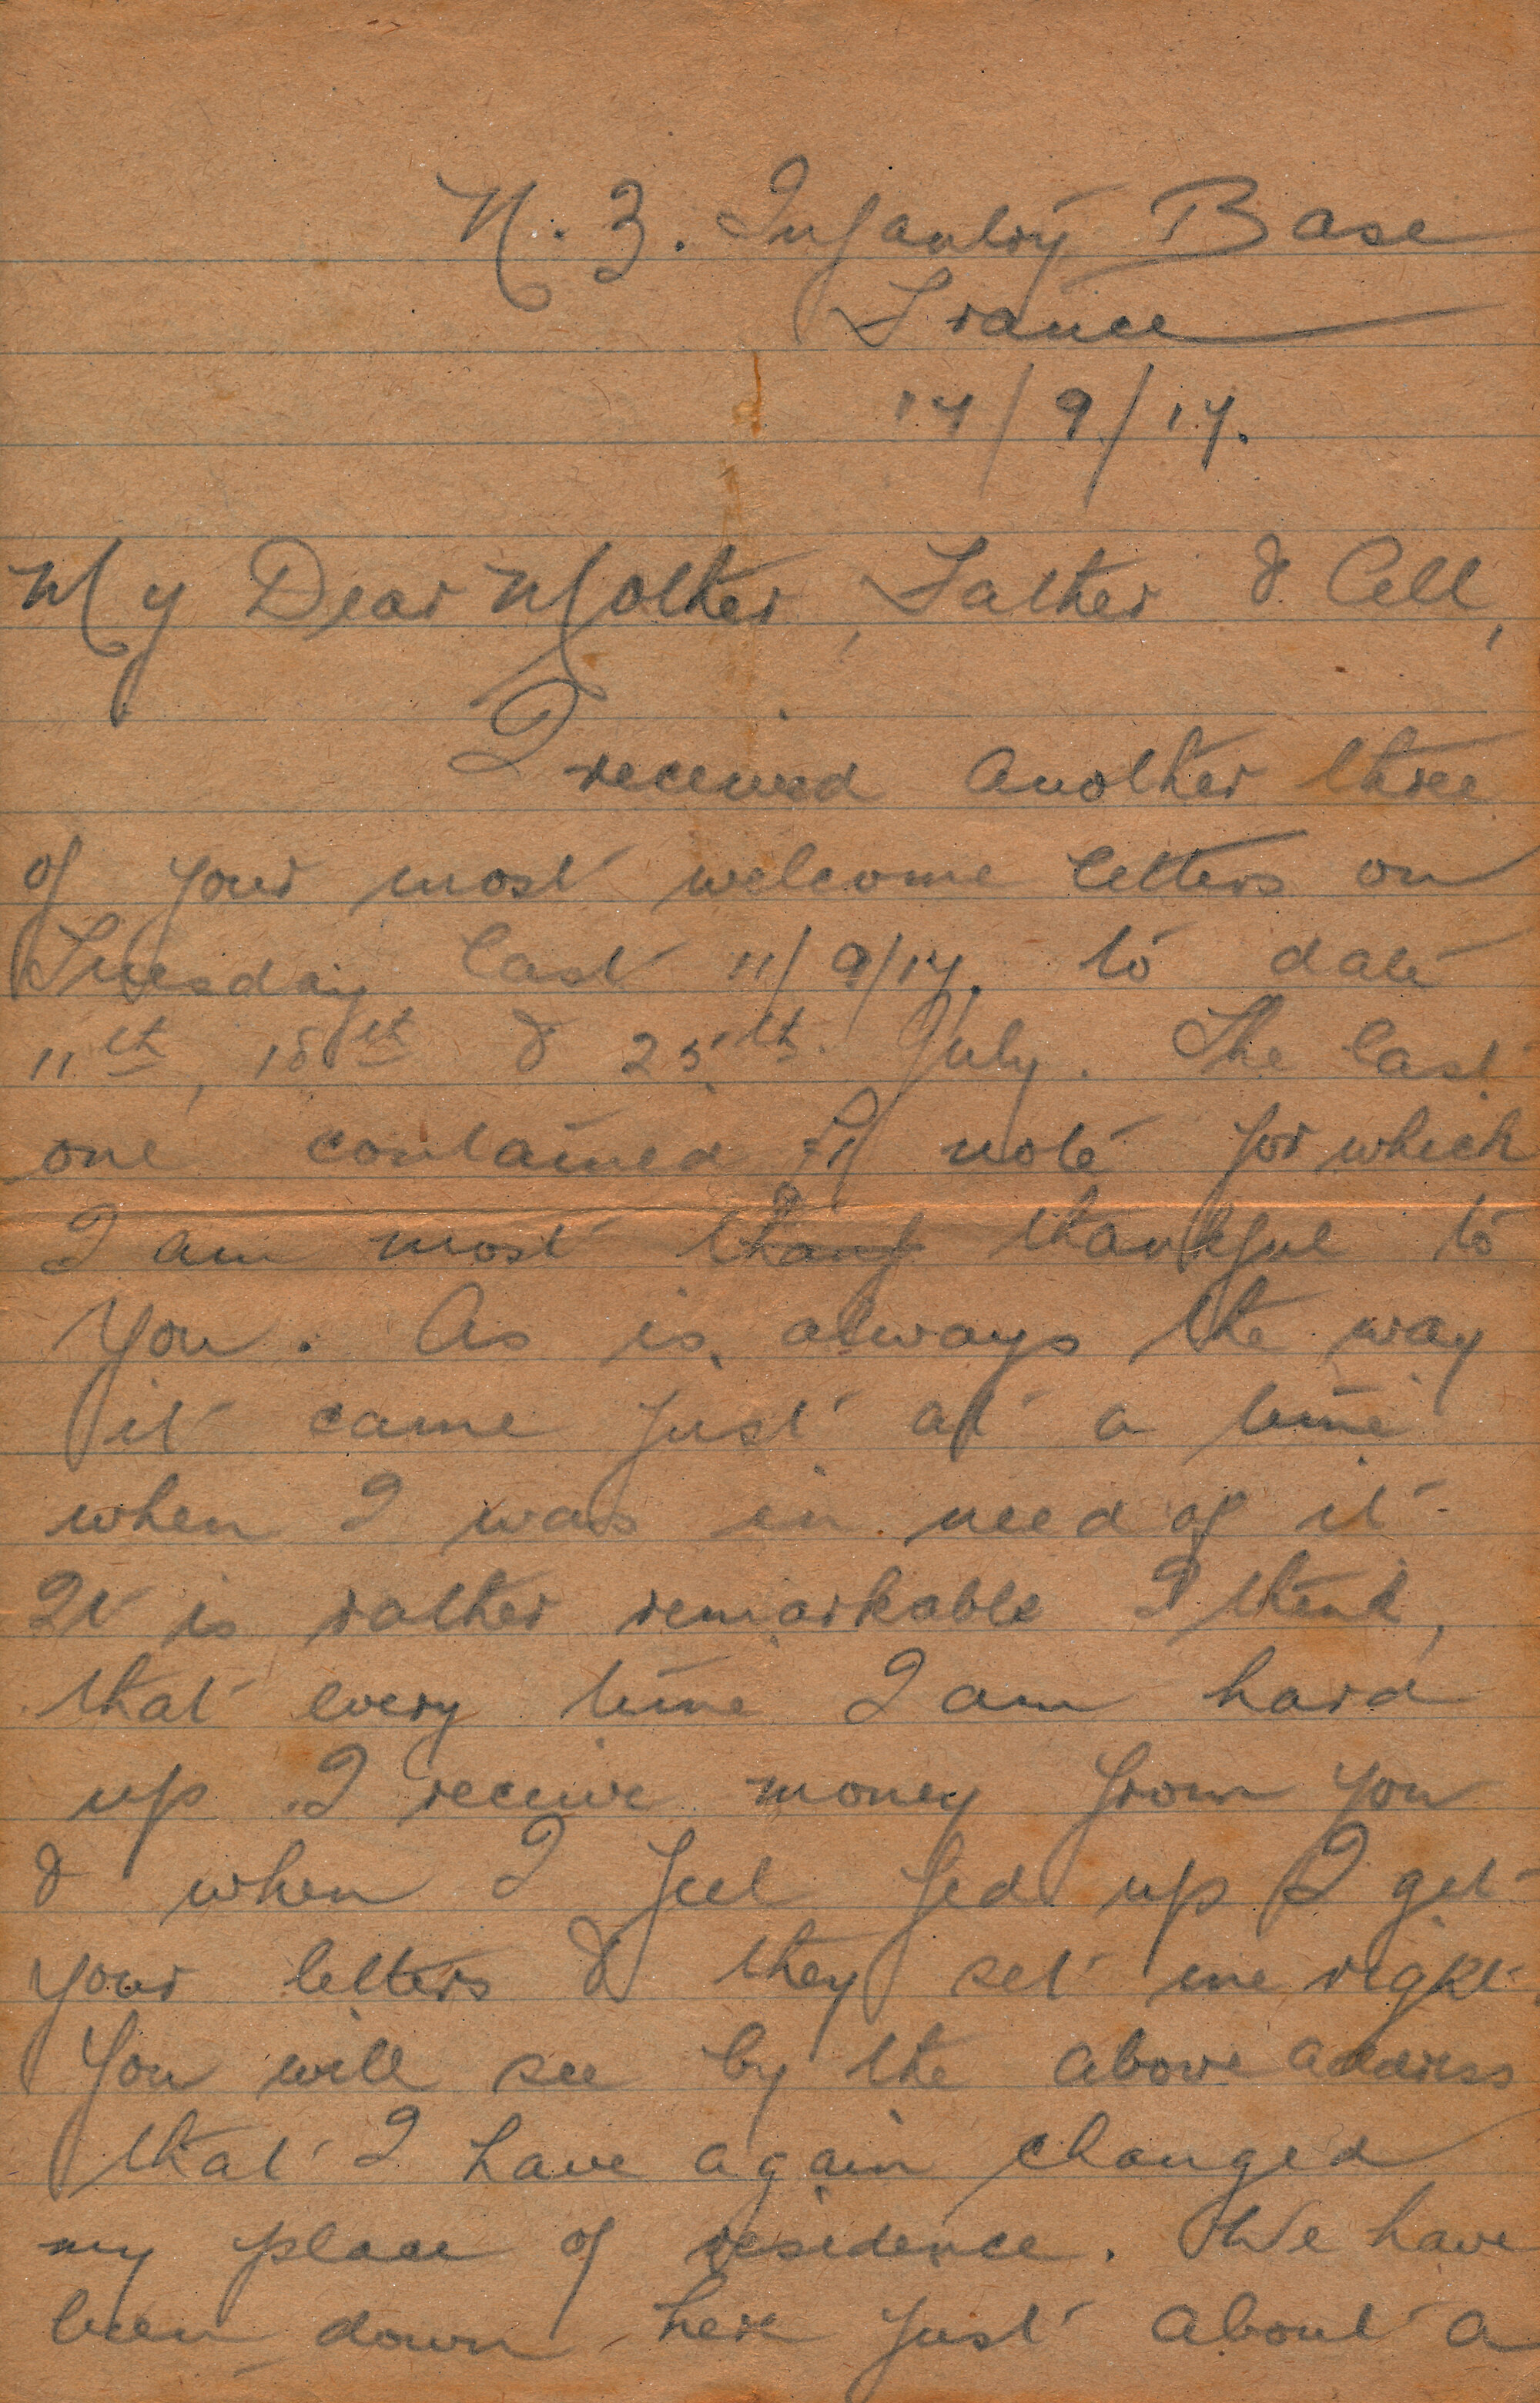 N. Z. Infantry Base
France
14/9/17.
My Dear Mother, Father & Cell,
I received another three
of your most welcome letters on
Tuesday last 11/9/17. to date
11th, 18th & 25th. July. The last
one contained £1 note for which
I am most thankful to
you. As is always the way
it came just at a time
when I was in need of it.
It is rather remarkable I think,
that every time I am hard
up I receive money from you
& when I feel fed up I get
your letters & they set me right.
You will see by the above address
that I have again changed
my place of residence. We have
been down here just about a